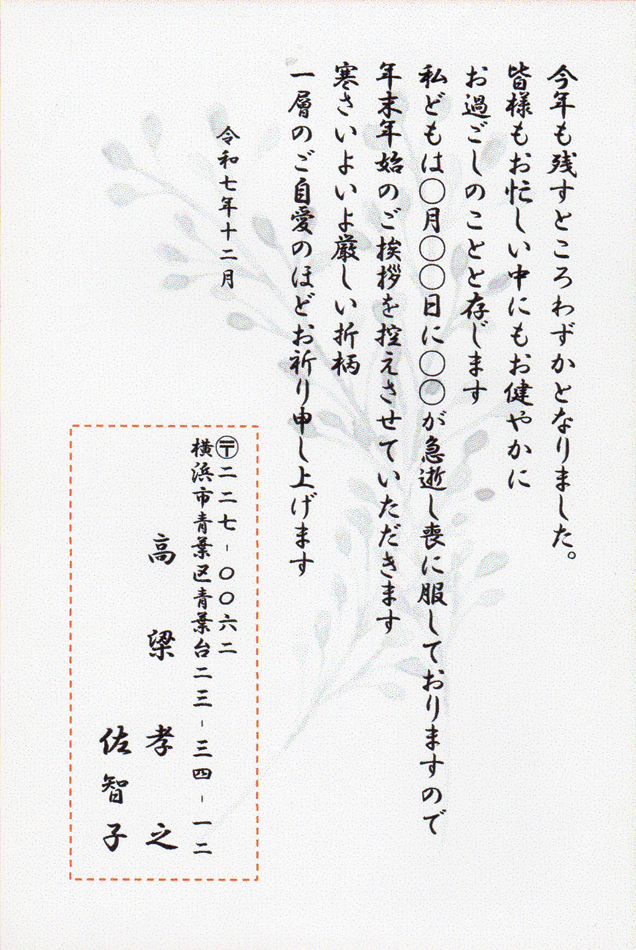 今年も残すところわずかとなりました。
皆様もお忙しい中にもお健やかに
お過ごしのことと存じます
私どもは〇月〇〇日に〇〇が急逝し喪に服しておりますので
年末年始のご挨拶を控えさせていただきます
寒さいよいよ厳しい折柄
一層のご自愛のほどお祈り申し上げます
令和七年十二月
〶二二七-〇〇六二
横浜市青葉区青葉台二三-三四-一二
高梁孝之
佐智子